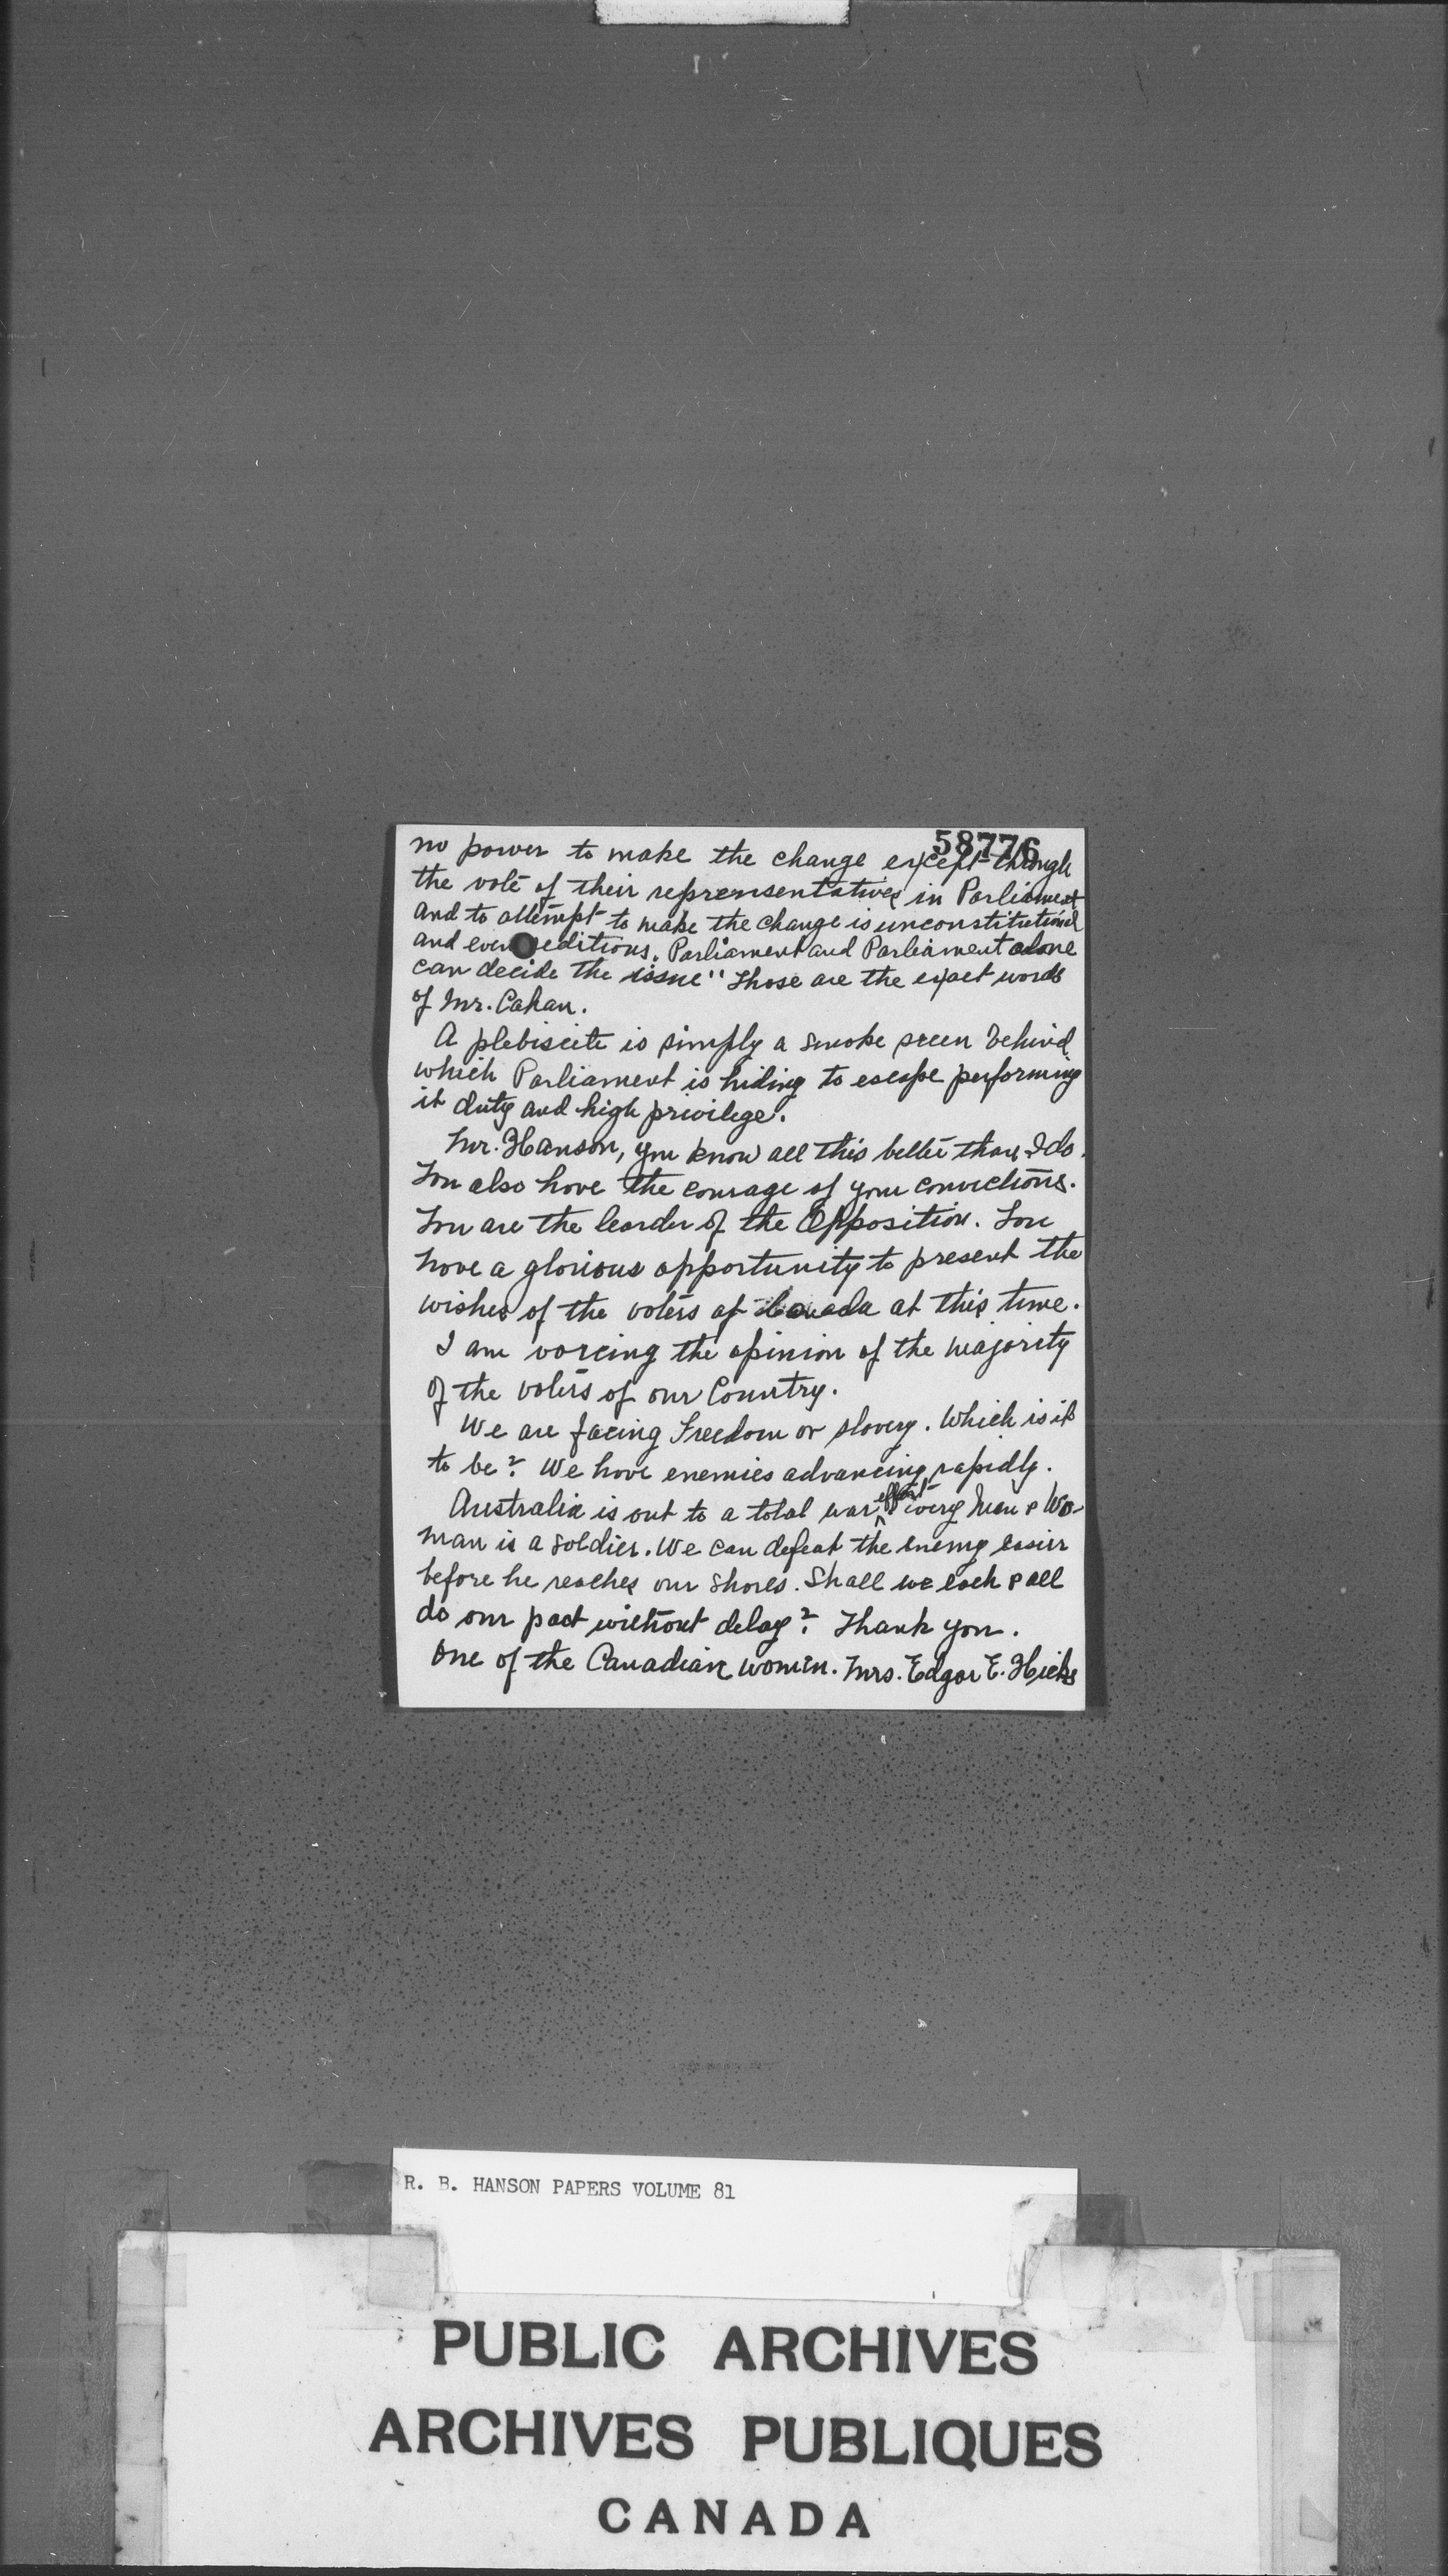 58776
no power to make the change except through
the vote of their reprensentatives in Parliament
and to attempt to make the change is unconstitutional
and even seditious. Parliament and Parliament alone
can decide the issue" Those are the exact words
of Mr. Cahan.
A plebiscite is simply a smoke sreen behind
which Parliament is hiding to escape performing
it duty and high privilege.
Mr. Hanson, you know all this better than I do.
You also have the courage of your convictions.
You are the leader of the Opposition. You
have a glorious opportunity to present the
wishes of the voters of Canada at this time.
I am voicing the opinion of the majority
of the voters of our Country.
We are facing Freedom or slavery. Which is it
to be? We have enemies advancing rapidly.
Australia is out to a total war effort every Man & Wo-
man is a soldier. We can defeat the enemy easier
before he reaches our shores. Shall we each & all
do our part without delay? Thank you.
One of the Canadian women. Mrs. Edgar E. Hicks
R. B. HANSON PAPERS VOLUME 81
PUBLIC ARCHIVES
ARCHIVES PUBLIQUES
CANADA